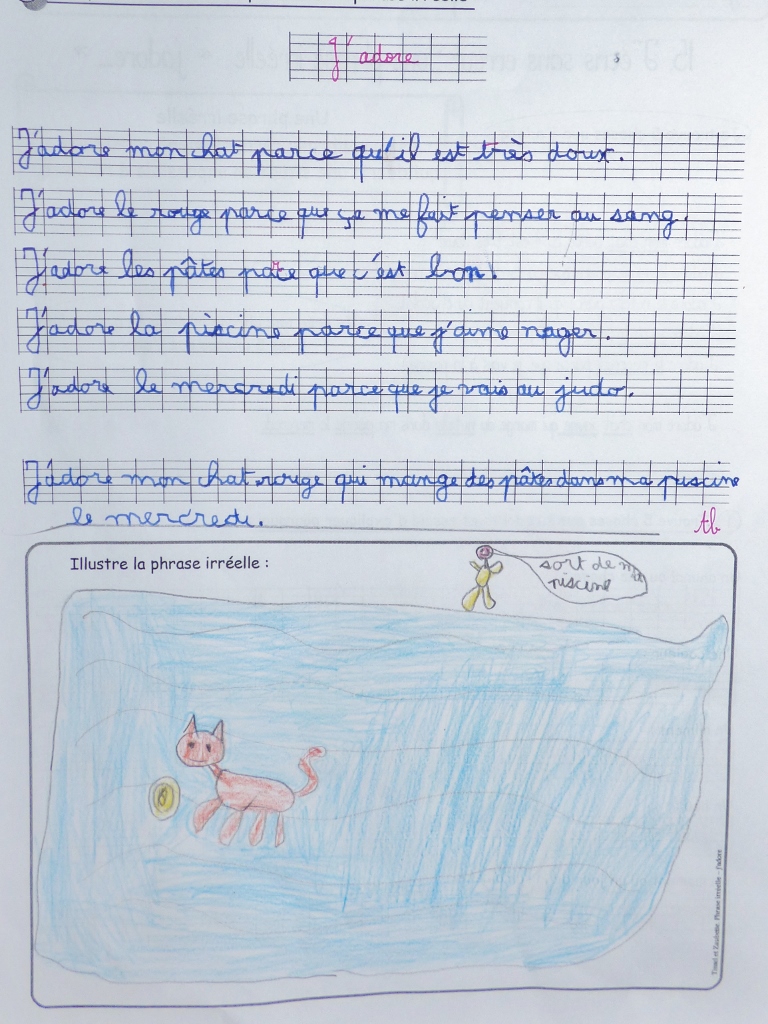 J'adore
J'adore mon chat parce qu'il est très doux.
J'adore le rouge parce que ça me fait penser au sang.
J'adore les pâtes parce que c'est bon.
J'adore la piscine parce que j'aime nager.
J'adore le mercredi parce que je vais au judo.
J'adore mon chat rouge qui mange des pâtes dans ma piscine
le mercredi.
tb
Illustre la phrase irréelle :
sort de ma
piscine